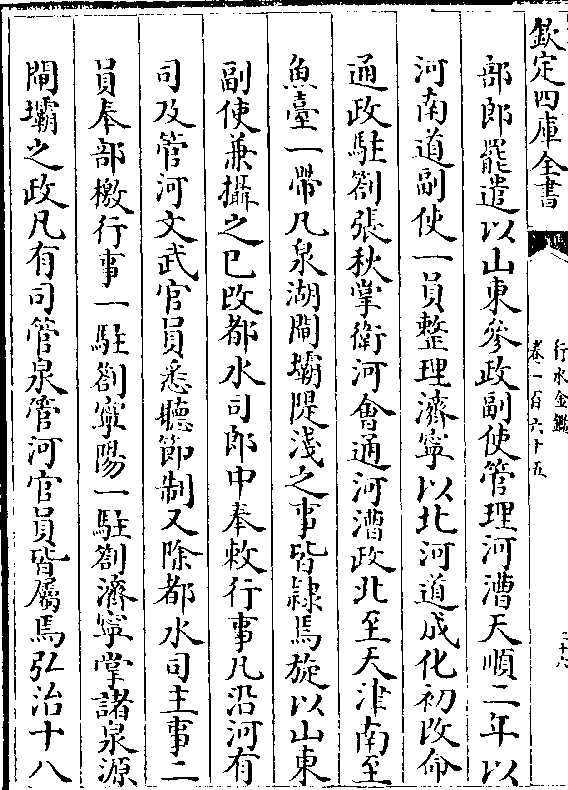 欽定四庫全書
行水金鑑
卷一百六十五
部郎罷遣以山東參政副使管理河漕天順二年以
河南道副使一員整理濟寧以北河道成化初改命
通政駐劄張秋掌衛河會通河漕政北至天津南至
魚臺一帶凡泉湖閘壩隄淺之事皆隸焉旋以山東
副使兼攝之已改都水司郎中奉敕行事凡沿河有
司及管河文武官員悉聽節制又除都水司主事二
員奉部檄行事一駐劄寧陽一駐劄濟寧掌諸泉源
閘壩之政凡有司管泉管河官員皆屬焉弘治十八